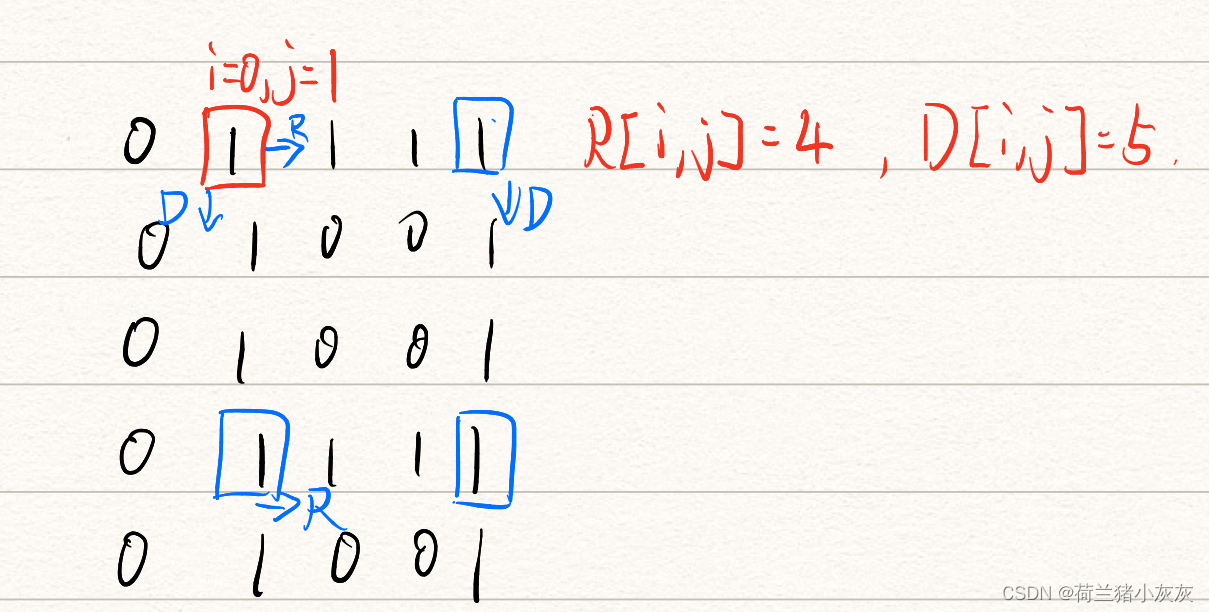 i=0,j=1
0 1 →R 1 1 1 R[i,j]=4 , D[i,j]=5.
D↓ ↓D
0 1 0 0 1
0 1 0 0 1
0 1 1 1 1
→R
0 1 0 0 1
CSDN @荷兰猪小灰灰